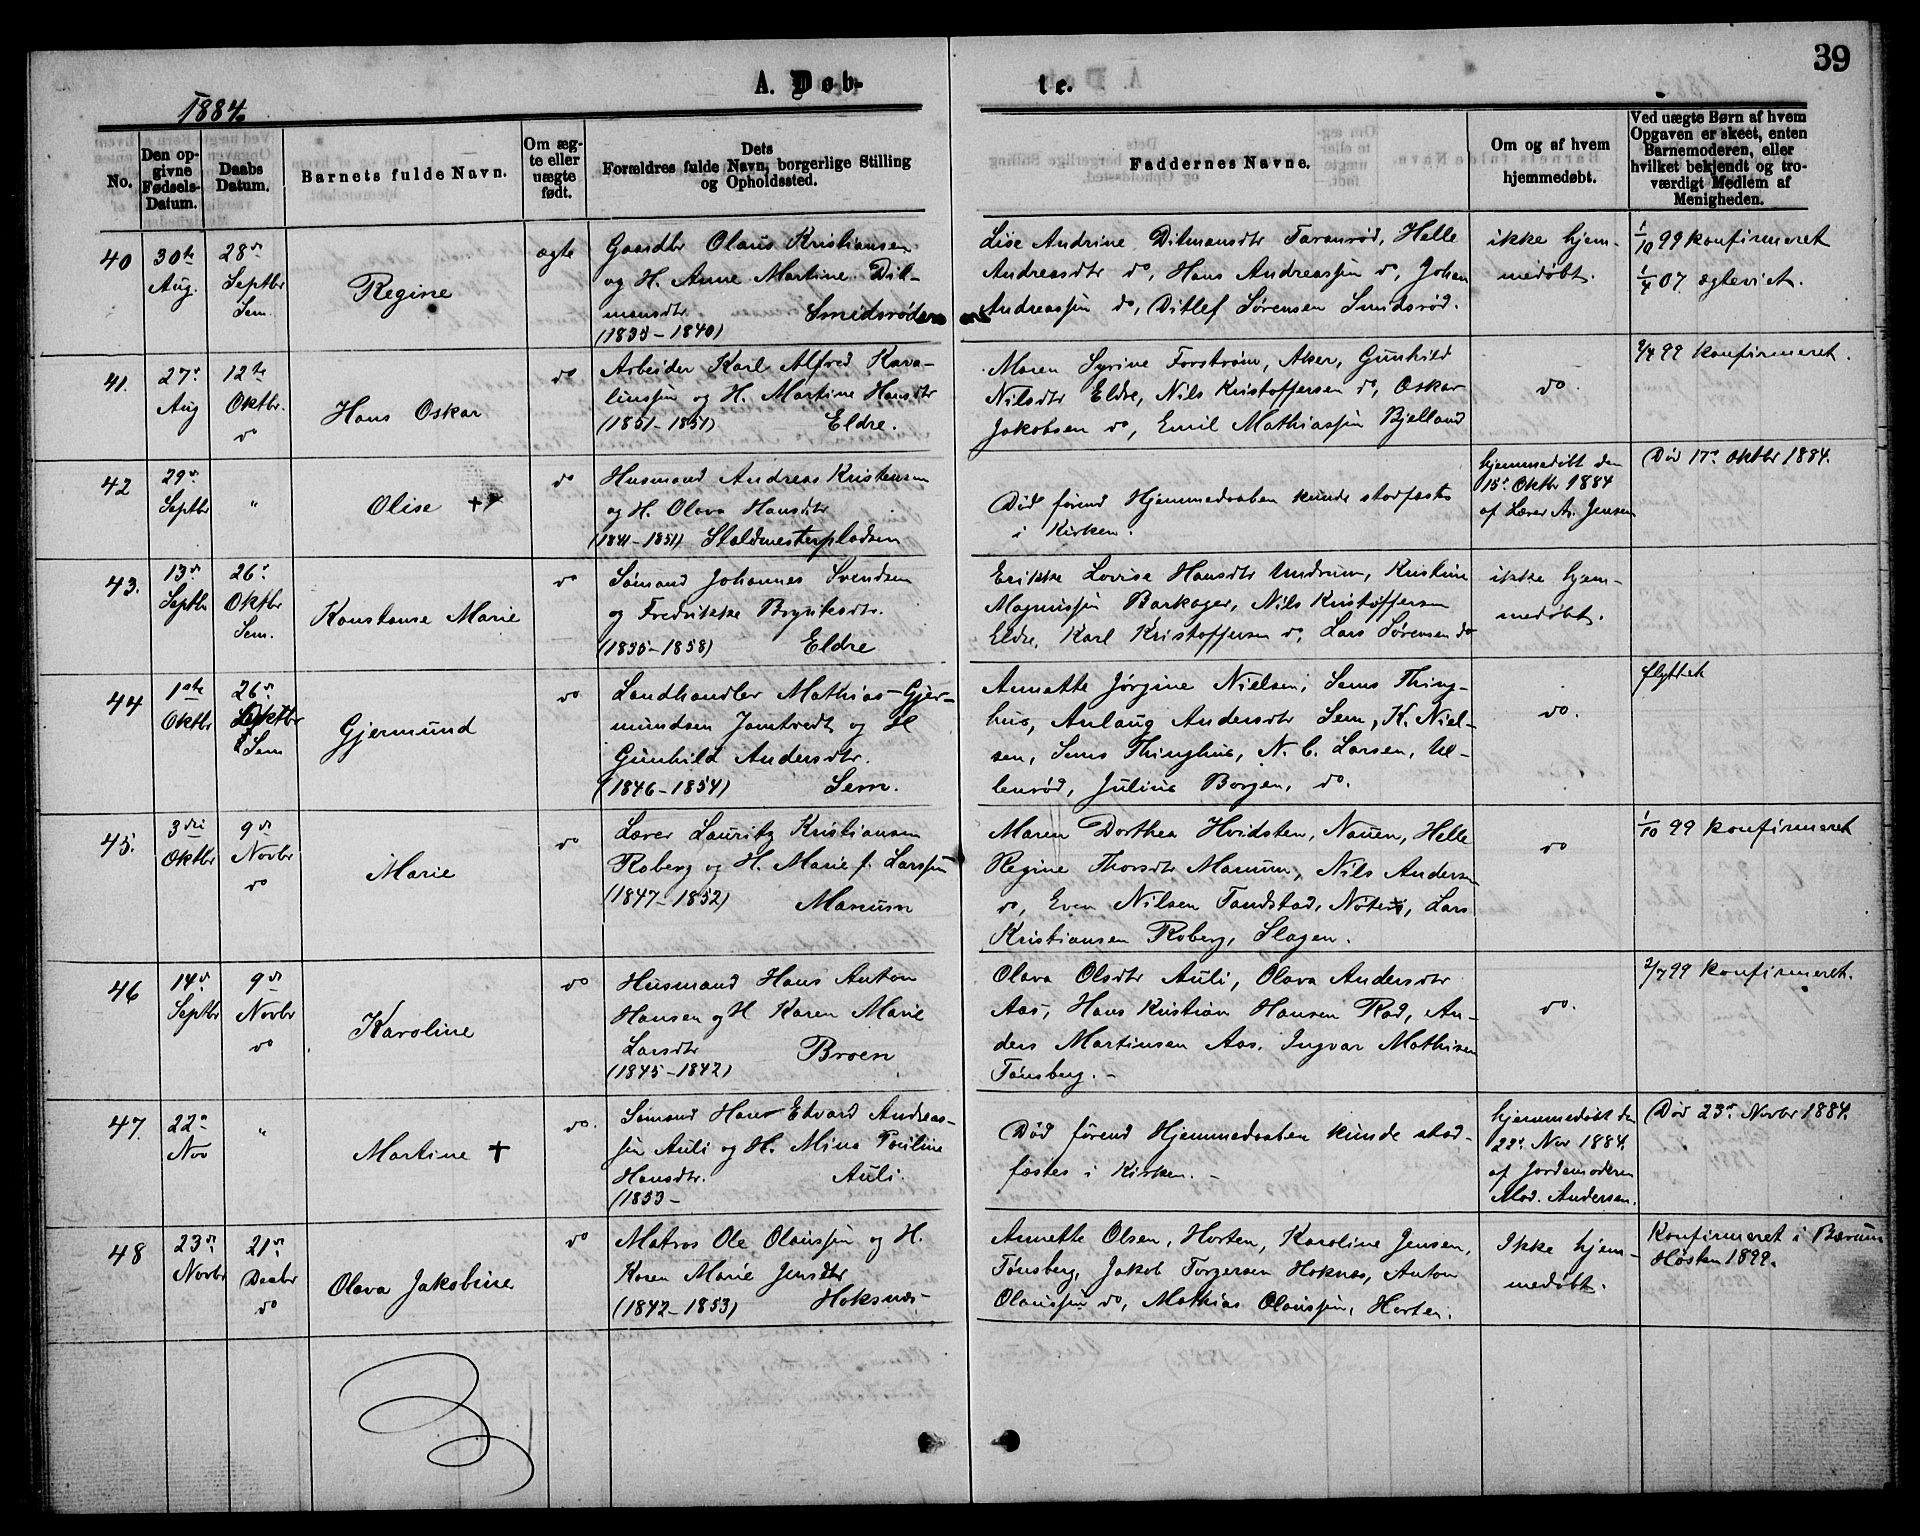 39
A. Døb-
te.
1884.
No.
Den op-
givne
Fødsels-
Datum.
Daabs
Datum.
Barnets fulde Navn.
Om æg-
te eller
uægte
født.
Dets
Forældres fulde Navn, borgerlige Stilling
og Opholdssted.
Faddernes Navne.
Om og af hvem
hjemmedøbt.
Ved uægte Børn af hvem
Opgaven er skeet, enten
Barnemoderen, eller
hvilket bekjendt og tro-
værdigt Medlem af
Menigheden.
40
30te
Aug.
28de
Septbr
Sem.
Regine
ægte
Gaardbr Olaus Kristiansen
og H. Anne Martine Dit-
mansdtr Smidsrøden
(1835-1840)
Lise Andrine Ditmansdtr Taranrød, Helle
Andreasdtr do, Hans Andreassen do, Johan
Andreassen do, Ditlef Sørensen Smidsrød.
ikke hjem-
medøbt.
1/10 99 konfirmeret
1/4 07. ægteviet.
41.
27de
Aug
12te
Oktbr.
do
Hans Oskar
do
Arbejder Karl Alfred Kava-
linssen og H. Martine Hansdtr
(1851-1851) Eldre.
Maren Syrine Forstrøm, Aker, Gunhild
Nilsdtr Eldre, Nils Kristoffersen do, Oskar
Jakobsen do, Emil Mathiassen Bjelland
do.
2/4 99 konfirmeret.
42
29de
Septbr
"
Olise ++
do
Husmand Andreas Kristensen
og H. Olava Hansdtr
(1841-1851) Staldmesterpladsen
Død førend Hjemmedaaben kunde stadfæstes
i Kirken.
hjemmedøbt den
15de Oktbr 1884
af Lærer A. Jensen
Død 17de Oktbr 1884.
43.
13de
Septbr
26de
Oktbr
Sem.
Konstanse Marie
do
Sømand Johannes Svendsen
og Fredrikke Bryniksdtr.
(1835-1858) Eldre
Erikke Lovise Hansdtr Undrum, Kristine
Magnussen Barkager, Nils Kristoffersen
Eldre, Karl Kristoffersen do, Lars Sørensen do
ikke hjem-
medøbt.
44
1ste
Oktbr
26de
Oktbr
Sem
Gjermund
do
Landhandler Mathias Gjer-
mundsen Jamtvedt og H
Gunhild Andersdtr.
(1846-1854) Sem.
Annette Jørgine Nielsen, Sems Thing-
hus, Anlaug Andersdtr Sem, K. Niel-
sen, Sems Thinghus, N. C. Larsen, Ul-
lenrød, Julius Borgen, do.
do.
flyttet
45.
3die
Oktbr
9de
Novbr
do
Marie
do
Lærer Lauritz Kristiansen
Roberg og H. Marie f. Larssen
(1847-1852) Manum
Maren Dorthea Hvidsten, Nauen, Helle
Regine Thorsdtr Manum, Nils Andersen
do, Even Nilsen Tandstad, Noterø, Lars
Kristiansen Roberg, Slagen.
do
1/10 99 konfirmeret
46
14de
Septbr
9de
Novbr
do
Karoline
do
Husmand Hans Anton
Hansen og H Karen Marie
Larsdtr Broen
(1845-1842)
Olava Olsdtr Auli, Olava Andersdtr
Aas, Hans Kristian Hansen Rod, An-
ders Martinsen Aas, Ingvar Mathisen
Tønsberg. -
do.
2/7 99 konfirmeret.
47.
22de
Nov
"
Martine +
do.
Sømand Hans Edvard Andreas-
sen Auli og H. Mina Pauline
Hansdtr. Auli.
(1853-
Død førend Hjemmedaaben kunde stad-
fæstes i Kirken. -
hjemmedøbt den
22de Nov 1884.
af Jordemoderen
Mad. Andersen.
Død 23de Novbr 1884.
48
23de
Novbr
21de
Decbr
do
Olava Jakobine
do
Matros Ole Olaussen og H.
Karen Marie Jensdtr
(1842-1853) Hoksnæs-
Annette Olsen, Horten, Karoline Jensen,
Tønsberg, Jakob Torgersen Hoknæs, Anton
Olaussen do, Mathias Olaussen, Horten.
Ikke hjem-
medøbt.
Konfirmeret i Bærum
Høsten 1899.